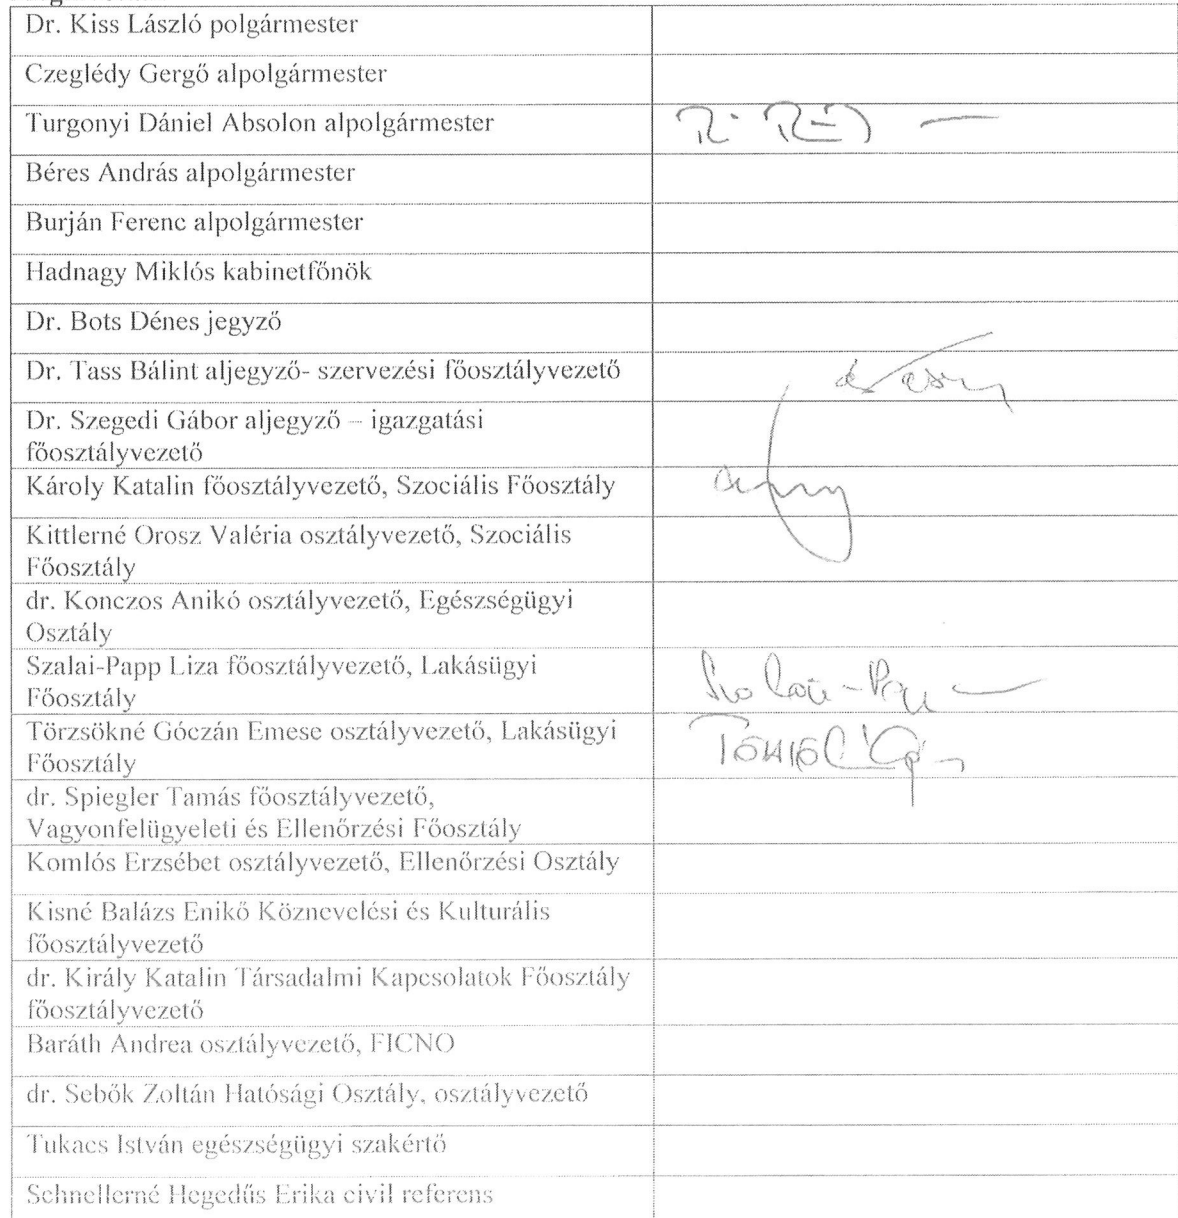 Dr. Kiss László polgármester
Czeglédy Gergő alpolgármester
Turgonyi Dániel Absolon alpolgármester
Béres András alpolgármester
Burján Ferenc alpolgármester
Hadnagy Miklós kabinetfőnök
Dr. Bots Dénes jegyző
Dr. Tass Bálint aljegyző- szervezési főosztályvezető
Dr. Szegedi Gábor aljegyző – igazgatási
főosztályvezető
Károly Katalin főosztályvezető, Szociális Főosztály
Kittlerné Orosz Valéria osztályvezető, Szociális
Főosztály
dr. Konczos Anikó osztályvezető, Egészségügyi
Osztály
Szalai-Papp Liza főosztályvezető, Lakásügyi
Főosztály
Törzsökné Góczán Emese osztályvezető, Lakásügyi
Főosztály
dr. Spiegler Tamás főosztályvezető,
Vagyonfelügyeleti és Ellenőrzési Főosztály
Komlós Erzsébet osztályvezető, Ellenőrzési Osztály
Kisné Balázs Enikő Köznevelési és Kulturális
főosztályvezető
dr. Király Katalin Társadalmi Kapcsolatok Főosztály
főosztályvezető
Baráth Andrea osztályvezető, FICNO
dr. Sebők Zoltán Hatósági Osztály, osztályvezető
Tukacs István egészségügyi szakértő
Schnellerné Hegedűs Erika civil referens